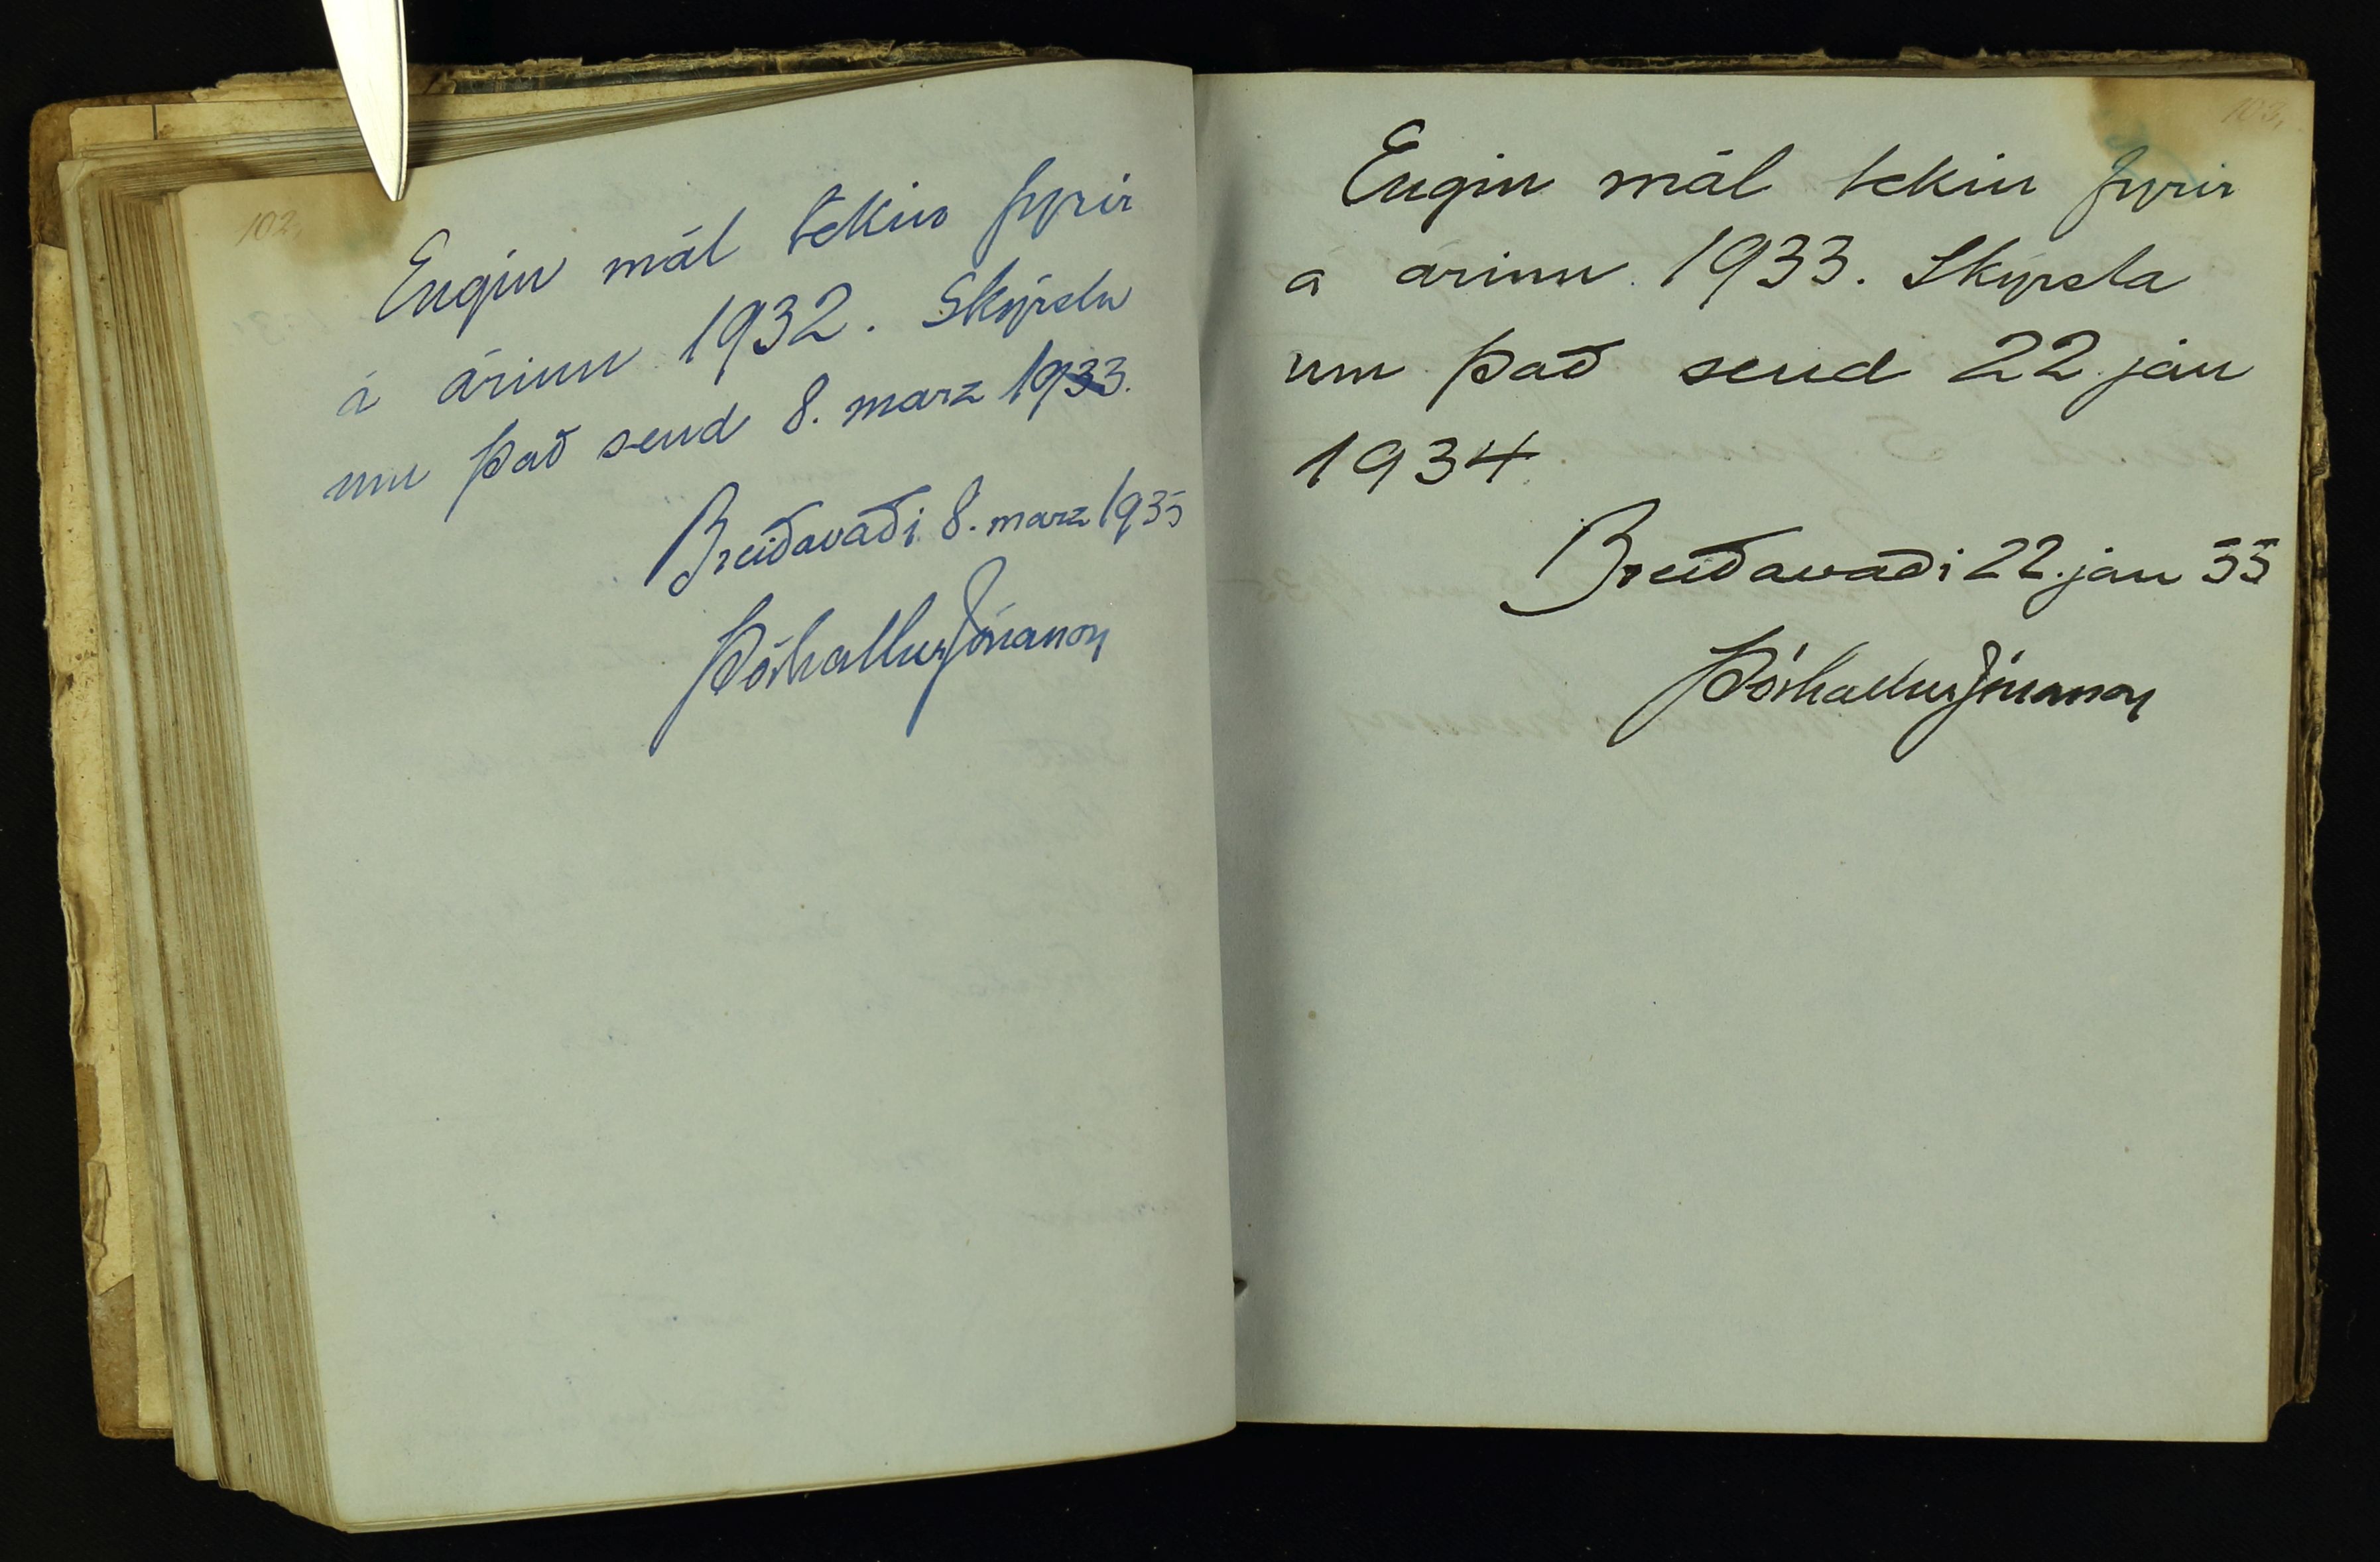 102.
Engin mál tekin fyrir
á árinu 1932. Skýrsla
um það send 8. marz 1933.
Breiðavaði 8. marz 1933
Þórhallur Jónasson
103.
Engin mál tekin fyrir
á árinu 1933. Skýrsla
um það send 22 jan
1934.
Breiðavaði 22. jan 33
Þórhallur Jónasson